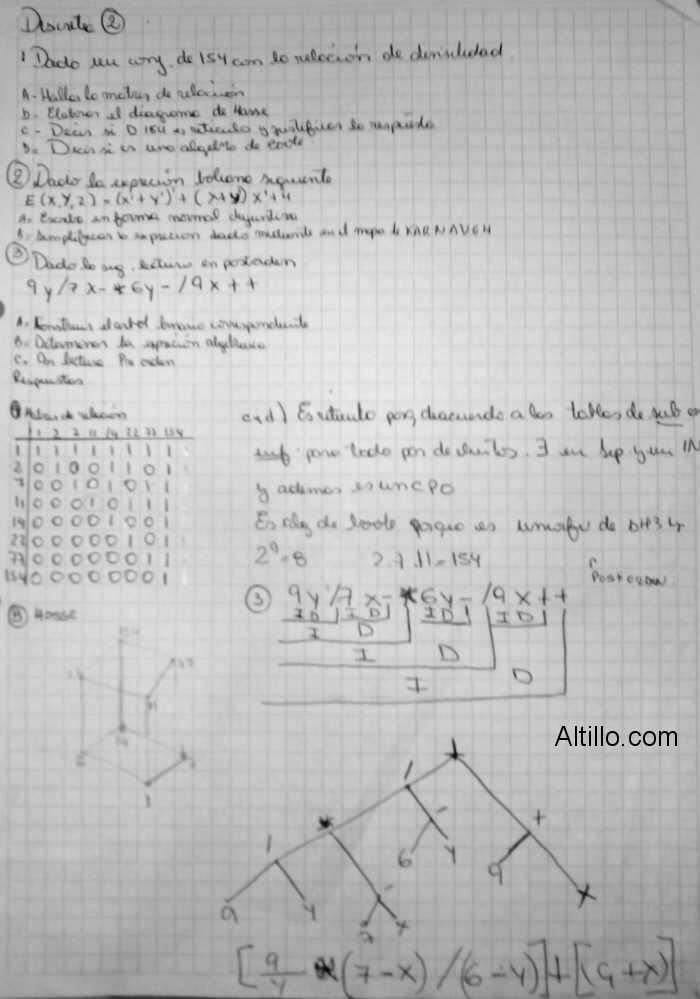 Discreta ②
1 Dado un conj. de 154 con la relación de divisilidad.
A- Hallar la matriz de relación
b- Elaborar el diagrama de Hasse
C- Decir si D 154 es reticulo y justificar la respuesta
D= Decir si es una algebra de boole
② Dado la expreción boleana siguiente
E (X,Y,Z) = (x'+y')'+(x+y) x'+y
A= Escribo en forma normal disjuntiva
B= Simplificar la expresion dado mediente en el mapa de KARNAVGH
③ Dado la sig. lectura en postorden
9 y / 7 x - * 6 y - / 9 x + +
A- Construir el arbol binario correspondiente
B= Determinar la expreción algebraica
C= Un lectura Pre orden
Respuestas
Matriz de relación
1 2 7 11 14 22 77 154
1 1 1 1 1 1 1 1 1
2 0 1 0 0 1 1 0 1
7 0 0 1 0 1 0 1 1
11 0 0 0 1 0 1 1 1
14 0 0 0 0 1 0 0 1
22 0 0 0 0 0 1 0 1
77 0 0 0 0 0 0 1 1
154 0 0 0 0 0 0 0 1
B HASSE
154
77
1
c y d) Es reticulo porq deacuerdo a las tablas de sub
inf para todo par de elementos. ∃ un Sup y un IN
y ademas es un CPO
Es alg de boole porque es
2³=8 2.7.11=154
Postorden
③ 9 y / 7 x - * 6 y - / 9 x + +
I D I D I D I D
I D
I D
I D
Altillo.com
+
/ +
* - 9 x
/ - 6 y
9 y 7 x
[9/y * (7-x) / (6-y)] + [(9+x)]